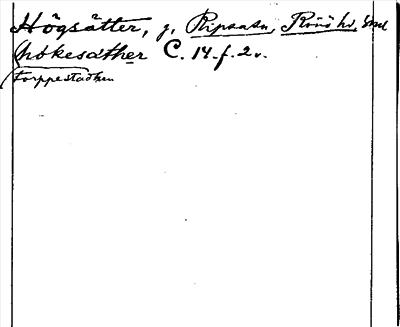 Högsätter, g, Ripsata, Rönö hd, Söd
hökesäther C. 14. f. 2 v.
torppestadhen